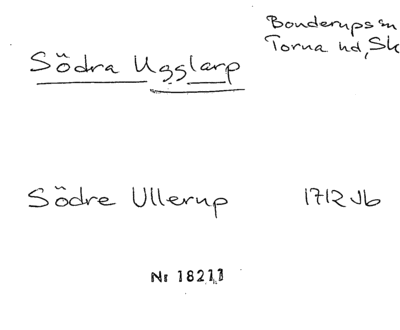 Bonderups sn
Torna hd, Sk
Södra Ugglarp
Södre Ullerup 1712 Jb
Nr 18211